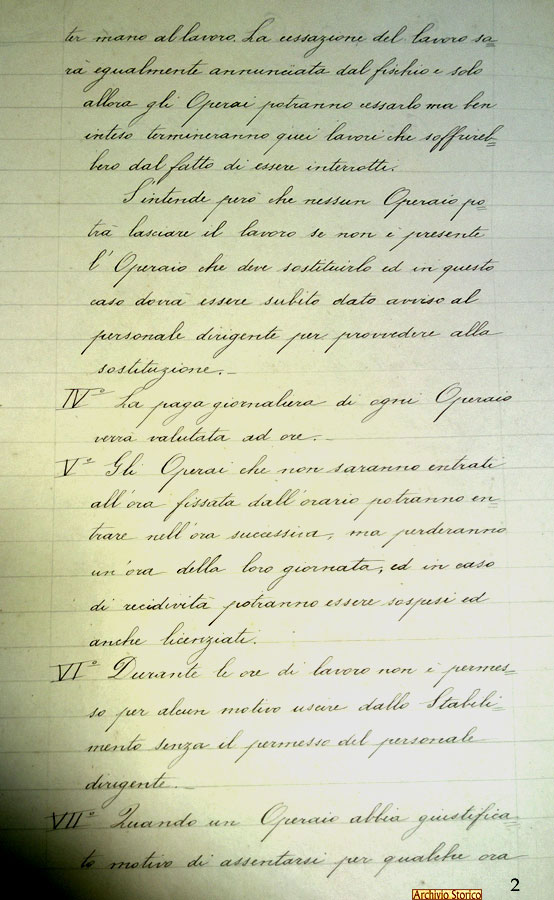 ter mano al lavoro. La cessazione del lavoro sa=
rà egualmente annunciata dal fischio e solo
allora gli Operai potranno cessarlo ma ben
inteso termineranno quei lavori che soffrireb=
bero dal fatto di essere interrotti.
S'intende però che nessun Operaio po=
trà lasciare il lavoro se non è presente
l'Operaio che deve sostituirlo ed in questo
caso dovrà essere subito dato avviso al
personale dirigente per provvedere alla
sostituzione.-
IV° La paga giornaliera di ogni Operaio
verrà valutata ad ore.-
V° Gli Operai che non saranno entrati
all'ora fissata dall'orario potranno en=
trare nell'ora successiva, ma perderanno
un'ora della loro giornata, ed in caso
di recidività potranno essere sospesi ed
anche licenziati.
VI° Durante le ore di lavoro non è permes=
so per alcun motivo uscire dallo Stabili=
mento senza il permesso del personale
dirigente.-
VII° Quando un Operaio abbia giustifica=
to motivo di assentarsi per qualche ora
Archivio Storico 2